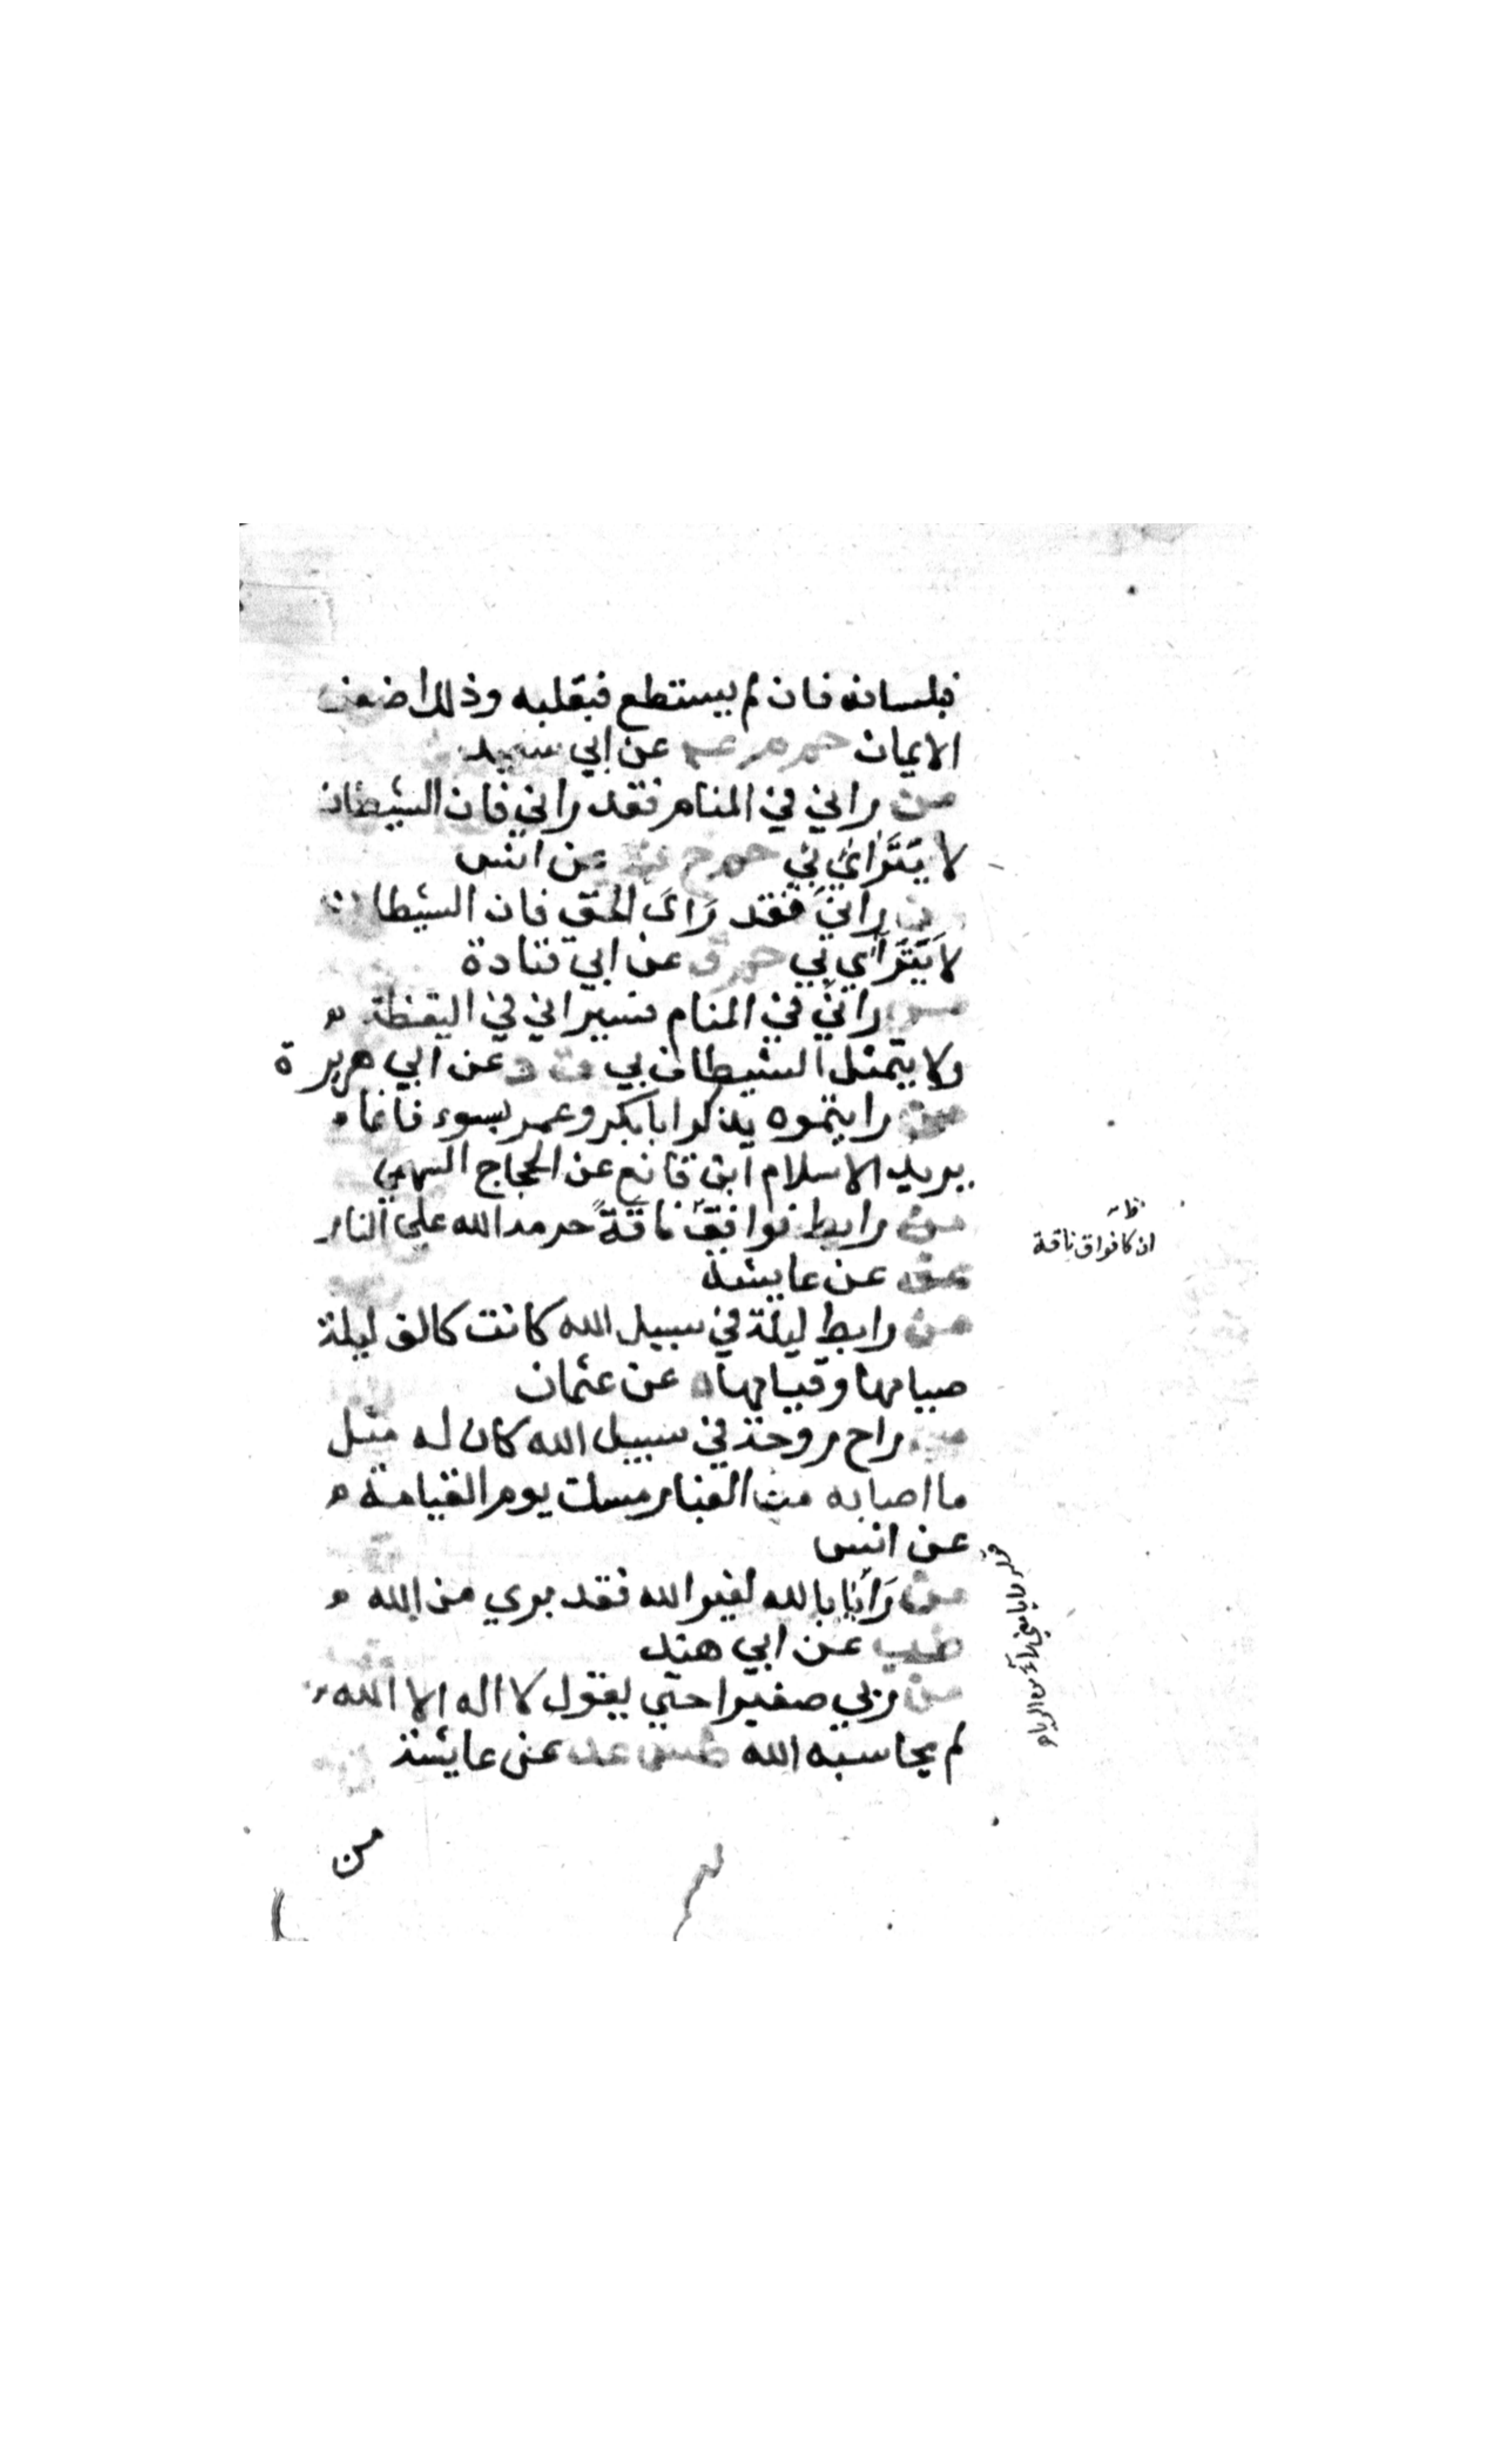 فبلسانه فان لم يستطع فبقلبه وذلك اضعف
الايمان حم م عه عن ابي سعيد
من راني في المنام فقد راني فان الشيطان
لا يَتَرَاىٰ بي حم خ ت عن انس
من راني فقد رَاىَ الحق فان الشيطان
لا يَتَرَاىٰ بي حم ق عن ابي قتادة
من راني في المنام فسيراني في اليقظة
ولا يتمثل الشيطان بي ق د عن ابي هريرة
من رايتموه يذكر ابا بكر وعمر بسوء فانما
يريد الاسلام ابن قانع عن الحجاج السهمي
من رابط فواق ناقةً حرمه الله علي النار
عق عن عايشة
من رابط ليلة في سبيل الله كانت كالف ليلة
صيامها وقيامها ه عن عثمان
من راح روحة في سبيل الله كان له مثل
ما اصابه من الغبار مسك يوم القيامة
عن انس
من رَايَا بالله لغير الله فقد بري من الله
طب عن ابي هند
من ربي صغيرا حتي يقول لا اله الا الله
لم يحاسبه الله طس عد عن عايشة
من
فواق ناقة
من الرياء